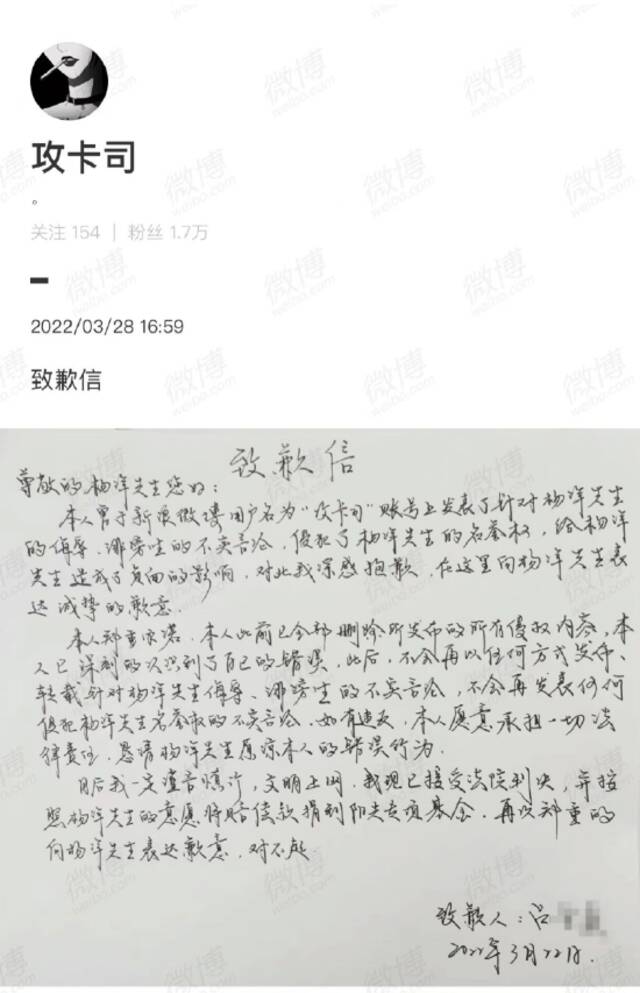 攻卡司
。
关注 154 | 粉丝 1.7万
2022/03/28 16:59
致歉信
致歉信
尊敬的杨洋先生您好：
本人曾于新浪微博用户名为“攻卡司”账号上发表了针对杨洋先生
的侮辱、诽谤性的不实言论，侵犯了杨洋先生的名誉权，给杨洋
先生造成了负面的影响，对此我深感抱歉，在这里向杨洋先生表
达诚挚的歉意．
本人郑重承诺：本人此前已全部删除所发布的所有侵权内容，本
人已深刻的认识到了自己的错误，此后，不会再以任何方式发布、
转载针对杨洋先生侮辱、诽谤性的不实言论，不会再发表任何
侵犯杨洋先生名誉权的不实言论．如有违反，本人愿意承担一切法
律责任．恳请杨洋先生原谅本人的错误行为．
日后我一定谨言慎行，文明上网．我现已接受法院判决，并按
照杨洋先生的意愿将赔偿款捐到阳光专项基金．再次郑重的
向杨洋先生表达歉意，对不起．
致歉人：吕
2022年3月22日．
微博
weibo.com